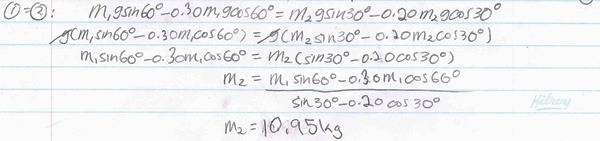 ①=②: m₁gsin60°-0.30m₁gcos60°=m₂gsin30°-0.20m₂gcos30°
g(m₁sin60°-0.30m₁cos60°)=g(m₂sin30°-0.20m₂cos30°)
m₁sin60°-0.30m₁cos60°=m₂(sin30°-0.20cos30°)
m₂=m₁sin60°-0.30m₁cos60°
sin30°-0.20cos30°
Hilroy
m₂=10.95kg